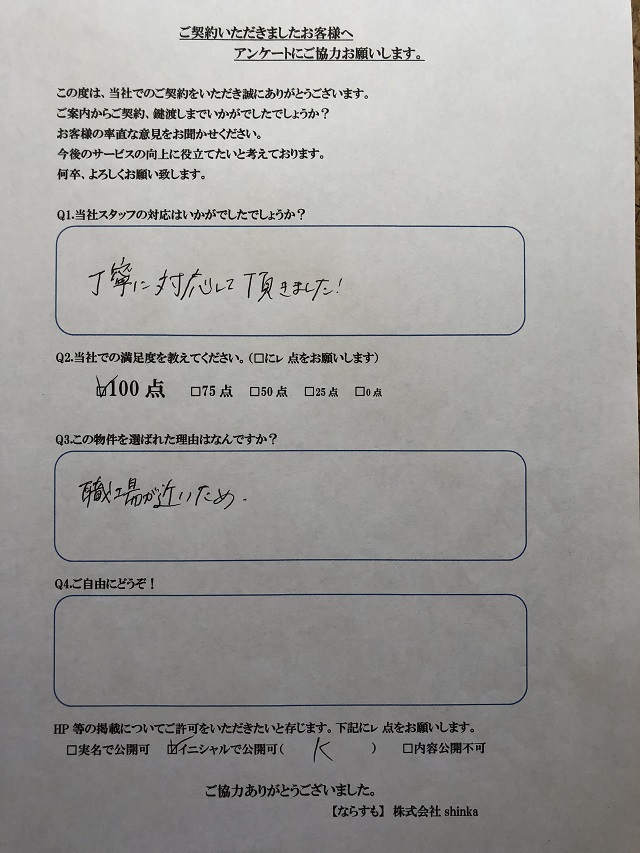 ご契約いただきましたお客様へ
アンケートにご協力お願いします。
この度は、当社でのご契約をいただき誠にありがとうございます。
ご案内からご契約、鍵渡しまでいかがでしたでしょうか？
お客様の率直な意見をお聞かせください。
今後のサービスの向上に役立てたいと考えております。
何卒、よろしくお願い致します。
Q1.当社スタッフの対応はいかがでしたでしょうか？
丁寧に対応して頂きました！
Q2.当社での満足度を教えてください。（□にㇾ点をお願いします）
☑100点 □75点 □50点 □25点 □0点
Q3.この物件を選ばれた理由はなんですか？
職場が近いため.
Q4.ご自由にどうぞ！
HP等の掲載についてご許可をいただきたいと存じます。下記にㇾ点をお願いします。
□実名で公開可 ☑イニシャルで公開可（ K ） □内容公開不可
ご協力ありがとうございました。
【ならすも】 株式会社shinka